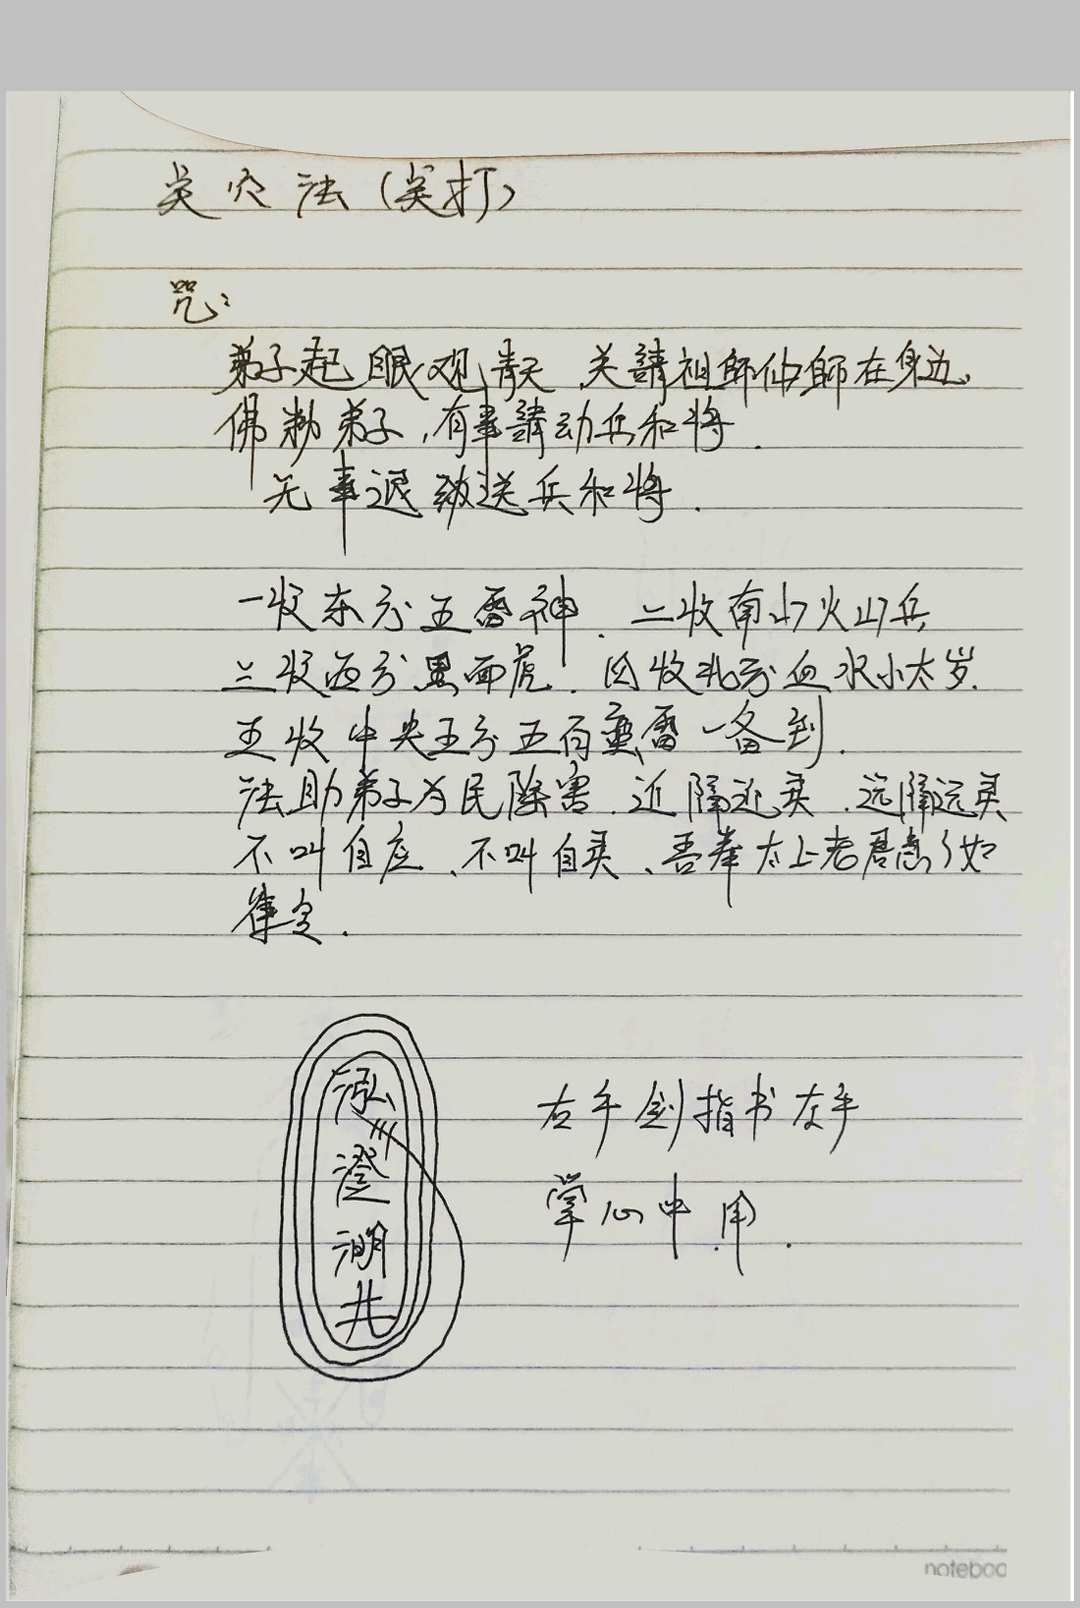 关穴法（关打）
咒：
弟子起眼观青天，关請祖師仙師在身边，
佛勑弟子，有事請动兵和将．
无事退 送兵和将．
一收东方五雷神．二收南山火山兵
三收西方黑面虎．四收北方血水小太岁．
五收中央五方五百蛮雷一备到．
法助弟子为民除害．近隔近灵．远隔远灵
不叫自应、不叫自灵、吾奉太上老君急々如
律令．
泓
澄
湖
井
右手剑指书左手
掌心中用．
noteboo